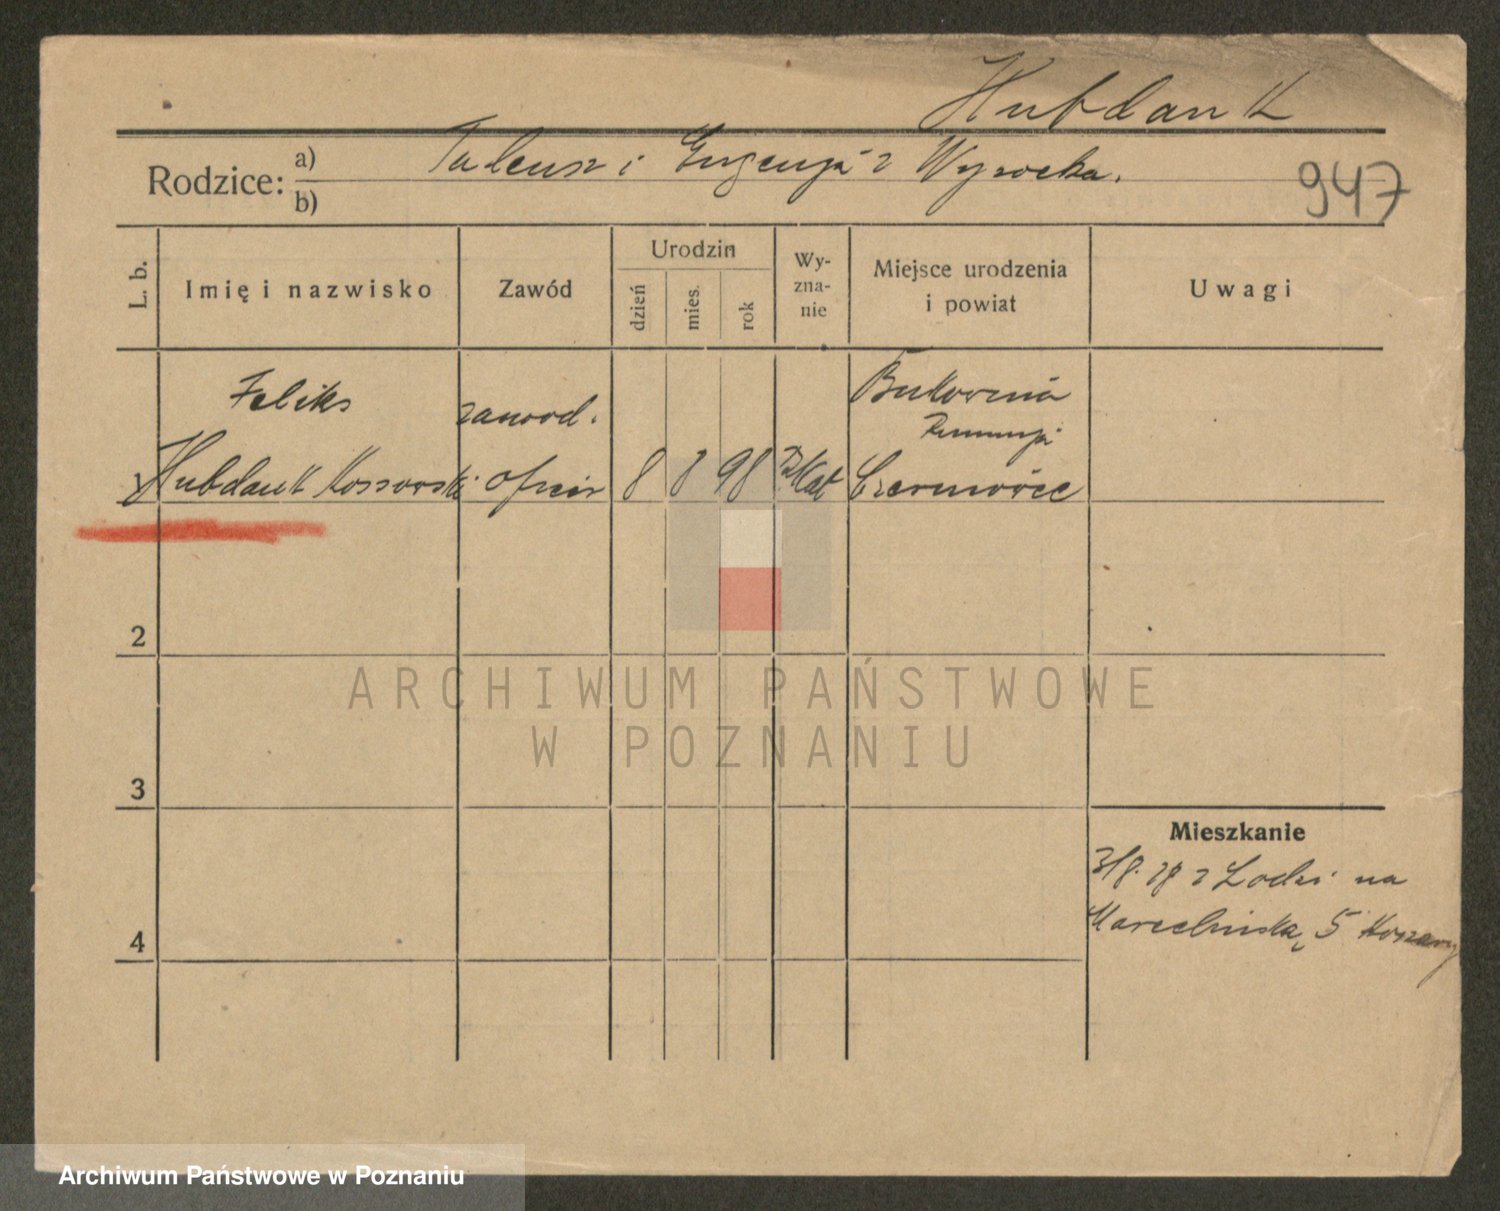 Hubdank
Rodzice: a) Tadeusz i Eugenja z Wysocka.
b)
947
L. b.
Imię i nazwisko
Zawód
Urodzin
dzień
mies.
rok
Wy-
zna-
nie
Miejsce urodzenia
i powiat
Uwagi
Feliks
zawod.
Bukowina
Rumunja
1 Hubdank Kossowski oficer 8 8 98 Rz Kat
2
3
4
Mieszkanie
z Łodzi na
Marcelińska, 5 Koszary
ARCHIWUM PAŃSTWOWE
W POZNANIU
Archiwum Państwowe w Poznaniu